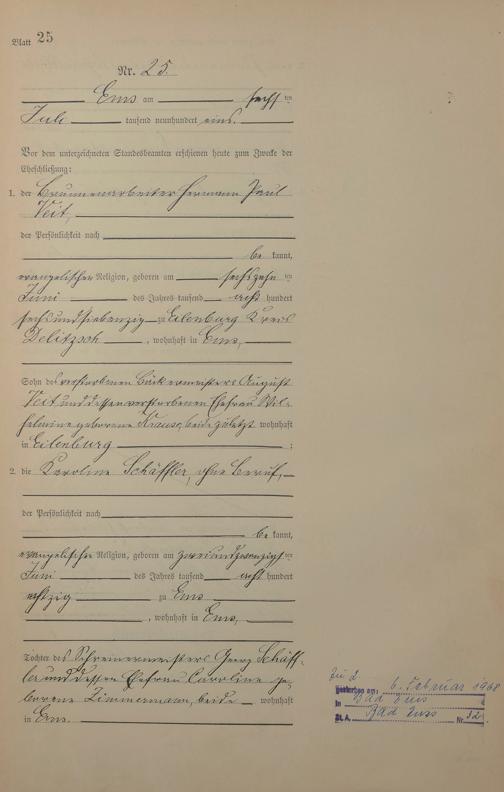 Blatt 25
Nr. 25.
Ems am sechsten
Juli tausend neunhundert eins.
Vor dem unterzeichneten Standesbeamten erschienen heute zum Zwecke der
Eheschließung:
1. der Brunnenarbeiter Hermann Paul
Veit,
der Persönlichkeit nach
be kannt,
evangelischer Religion, geboren am sechszehnten
Juni des Jahres tausend acht hundert
sechsundsiebenzig zu Eilenburg Kreis
Delitzsch, wohnhaft in Ems,
Sohn des verstorbenen Bäckermeisters August
Veit und dessen verstorbenen Ehefrau Wil-
helmine geborene Krause, beide zuletzt wohnhaft
in Eilenburg ;
2. die Karoline Schäffler, ohne Beruf,
der Persönlichkeit nach
be kannt,
evangelischer Religion, geboren am zweiundzwanzigsten
Juni des Jahres tausend acht hundert
achtzig zu Ems
, wohnhaft in Ems,
Tochter des Schreinermeisters Georg Schäff-
ler und dessen Ehefrau Caroline ge-
borene Zimmermann, beide wohnhaft
in Ems.
zu 2
Gestorben am: 6. Februar 1968
in Bad Ems
St. A. Bad Ems Nr. 32